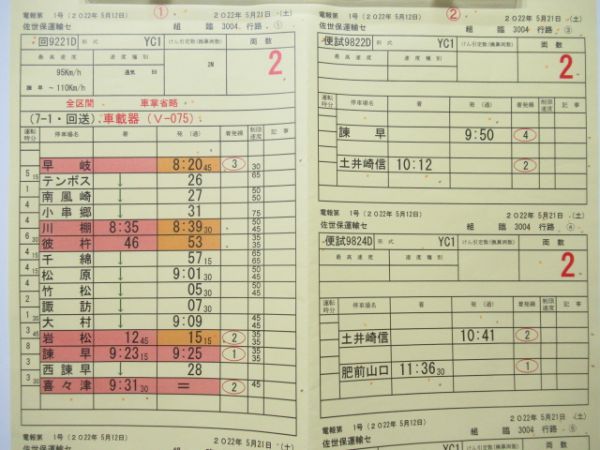 電報第 1号(2022年 5月12日) ① 2022年 5月21日 (土)
佐世保運輸セ 組 臨 3004 行路 ①
回9221D 形 式 YC1 けん引定数(換算両数) 両 数
最 高 速 度 速 度 種 別
95Km/h 通気 2N 2
諫 早 ~110Km/h
全区間 車掌省略
(7-1・回送)、車載器(V-075)
運転時分 停車場名 着 発 (通) 着発線 制限速度 記 事
早 岐 8:20 45 ③ 30
5 15 テンボス ↓ 26 65
南風崎 ↓ 27 50
小串郷 ↓ 31 75
川 棚 8:35 8:39 30
彼 杵 46 53
千 綿 ↓ 57 15
松 原 ↓ 9:01 30
竹 松 ↓ 05
諏 訪 ↓ 07 30
大 村 ↓ 9:09
岩 松 12 45 15 15 ②
諫 早 9:23 15 9:25 ①
西諫早 ↓ 28
喜々津 9:31 30 = ② 45
電報第 1号(2022年 5月12日) 2022年 5月21日 (土)
佐世保運輸セ
② 2022年 5月21日 (土)
佐世保運輸セ 組 臨 3004 行路 ③
便試9822D 形 式 YC1 けん引定数(換算両数) 両 数
最 高 速 度 速 度 種 別 2
運転時分 停車場名 着 発 (通) 着発線 制限速度 記 事
諫 早 9:50 ④
土井崎信 10:12 ②
電報第 1号(2022年 5月12日) 2022年 5月21日 (土)
佐世保運輸セ 組 臨 3004 行路 ④
便試9824D 形 式 YC1 けん引定数(換算両数) 両 数
最 高 速 度 速 度 種 別 2
運転時分 停車場名 着 発 (通) 着発線 制限速度 記 事
土井崎信 10:41 ②
肥前山口 11:36 30 ①
電報第 1号(2022年 5月12日) 2022年 5月21日 (土)
佐世保運輸セ 組 臨 3004 行路 ⑤